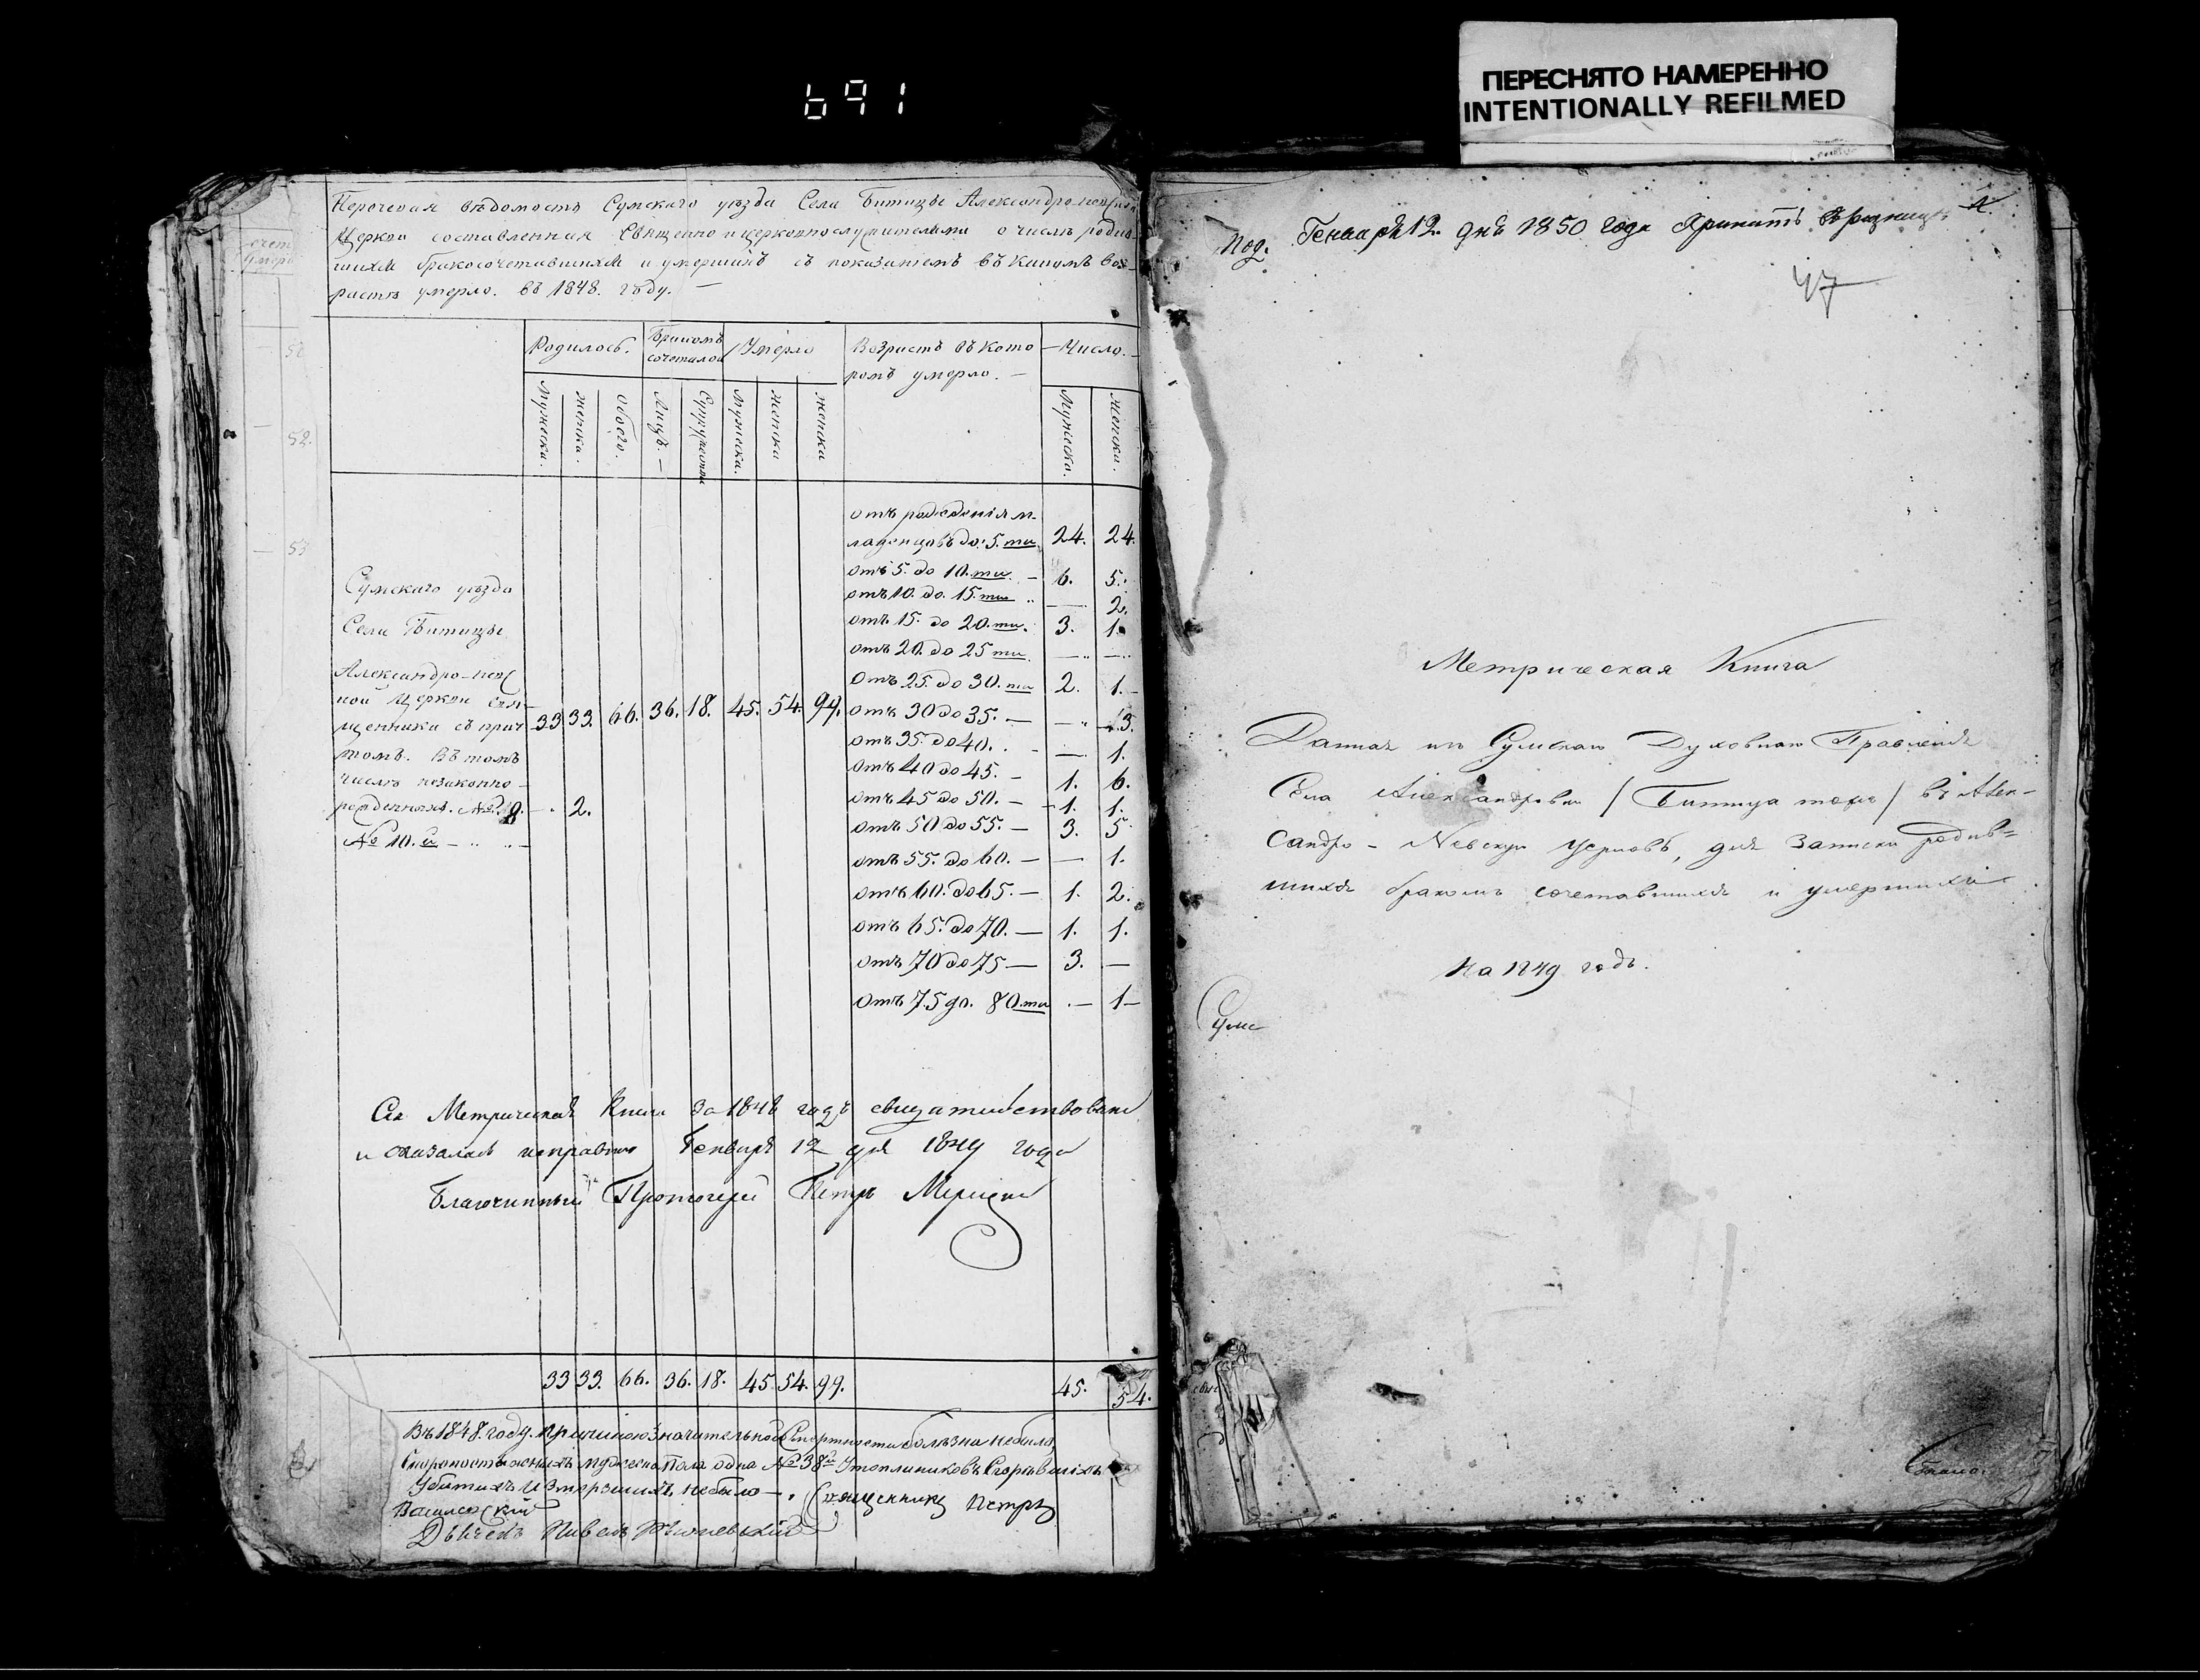 691
ПЕРЕСНЯТО НАМЕРЕННО
INTENTIONALLY REFILMED
Перечевая вѣдомость Сумскаго уѣзда Села Битицы Александроневской
Церкви составленная Священно и церковнослужителями о числѣ родив-
шихся бракосочетавшихся и умершихъ съ показаніемъ въ какомъ воз-
растѣ умерло. въ 1848. году. —
Родилось. Бракомъ сочеталось Умерло Возрастъ въ кото ромъ умерло. — Число.
Мужеска. женска. обоего. Лицъ. — Супружествъ Мужеска. женска женска Мужеска. женска.
отъ рожденія м-
ладенцовъ до 5. ти 24. 24.
отъ 5. до 10. ти. — 6. 5.
отъ 10. до. 15. ти — 2.
отъ 15. до 20. ти. 3. 1.
отъ 20. до 25 ти. — —
отъ 25. до 30. ти 2. 1.
отъ 30 до 35. — — 3.
отъ 35. до 40. — 1.
отъ 40 до 45. — 1. 6.
отъ 45 до 50. — 1. 1.
отъ 50 до 55. — 3. 5
отъ 55. до 60. — — 1.
отъ 60. до 65. — 1. 2.
отъ 65. до 70. — 1. 1.
отъ 70 до 75 — 3. —
отъ 75 до. 80. ти — 1
Сумскаго уѣзда
Села Битицы
Александро-нев
ской Церкви свя-
щенника съ прич 33 33. 66. 36. 18. 45. 54. 99.
томъ. Въ томъ
числѣ незаконно-
рожденныхъ. № 9. — 2.
№ 10. й
Сія Метрическая Книга за 1848 годъ свидѣтельствована
и оказалась исправною Генваря 12 дня 1849 года
Благочинный Протоіерей Петръ
33 33. 66. 36. 18. 45 54. 99. 45. 54.
Въ 1848. году. причиною значительной Смертности болѣзна небыло,
Скоропостижныхъ мужеска пола одна № 38й Утопленниковъ Сгоревшихъ
Убитыхъ и Замерзшихъ небыло —. Священникъ Петръ
Василевский
Дьячекъ Павелъ
50
52.
53
Под. Генваря 12. дня 1850 года Принятъ въ ризницу
47
Метрическая Книга
Данная изъ Сумскаго Духовнаго Правленія
Села Александровки / Битица тожъ / въ Алек-
сандро-Невскую церковь, для Записки родив=
шихся бракомъ сочетавшихся и умершихъ
на 1849 годъ.
Сумс